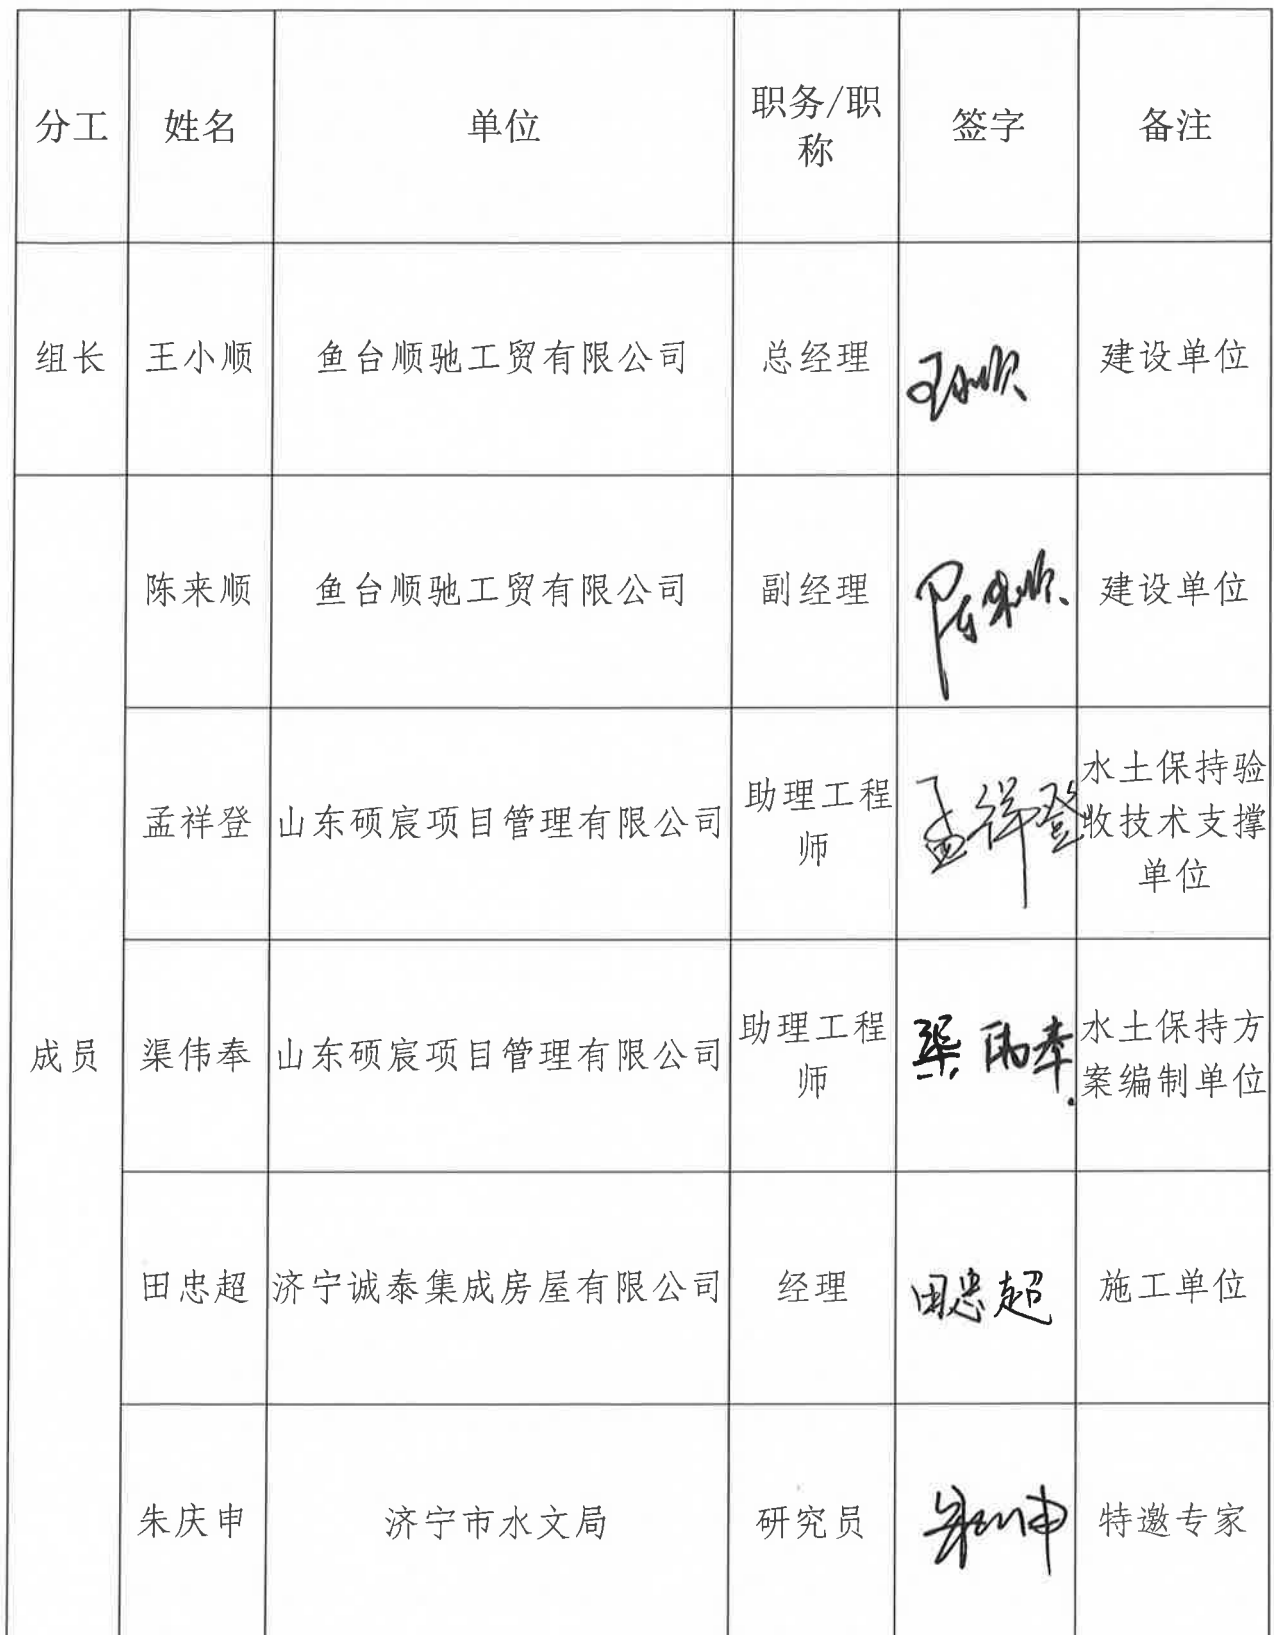 分工 姓名 单位 职务/职称 签字 备注
组长 王小顺 鱼台顺驰工贸有限公司 总经理 王小顺 建设单位
成员 陈来顺 鱼台顺驰工贸有限公司 副经理 陈来顺 建设单位
孟祥登 山东硕宸项目管理有限公司 助理工程师 孟祥登 水土保持验收技术支撑单位
渠伟奉 山东硕宸项目管理有限公司 助理工程师 渠伟奉 水土保持方案编制单位
田忠超 济宁诚泰集成房屋有限公司 经理 田忠超 施工单位
朱庆申 济宁市水文局 研究员 朱庆申 特邀专家